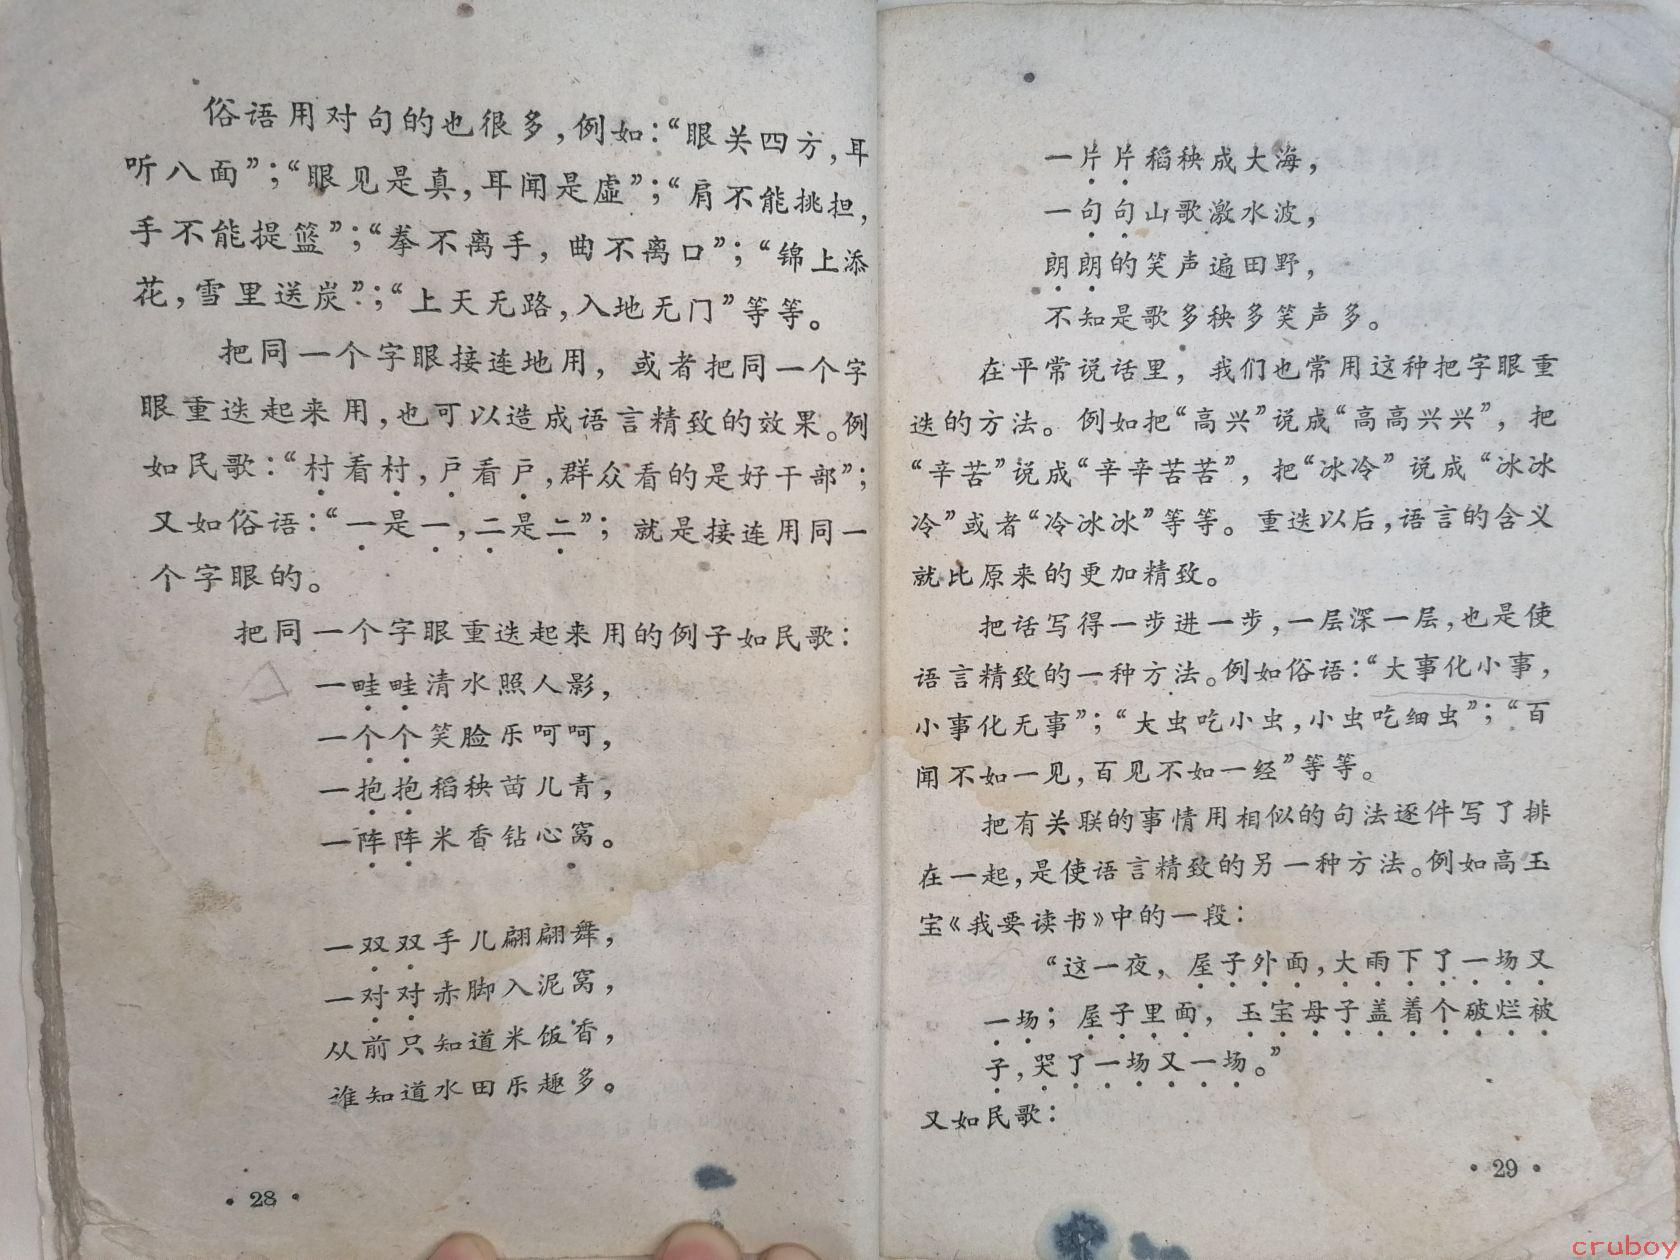 俗语用对句的也很多,例如:“眼关四方,耳
听八面”;“眼见是真,耳闻是虚”;“肩不能挑担,
手不能提篮”;“拳不离手,曲不离口”;“锦上添
花,雪里送炭”;“上天无路,入地无门”等等。
把同一个字眼接连地用,或者把同一个字
眼重迭起来用,也可以造成语言精致的效果。例
如民歌:“村看村,户看户,群众看的是好干部”;
又如俗语:“一是一,二是二”;就是接连用同一
个字眼的。
把同一个字眼重迭起来用的例子如民歌:
一畦畦清水照人影,
一个个笑脸乐呵呵,
一抱抱稻秧苗儿青,
一阵阵米香钻心窝。
一双双手儿翩翩舞,
一对对赤脚入泥窝,
从前只知道米饭香,
谁知道水田乐趣多。
·28·
一片片稻秧成大海,
一句句山歌激水波,
朗朗的笑声遍田野,
不知是歌多秧多笑声多。
在平常说话里,我们也常用这种把字眼重
迭的方法。例如把“高兴”说成“高高兴兴”,把
“辛苦”说成“辛辛苦苦”,把“冰冷”说成“冰冰
冷”或者“冷冰冰”等等。重迭以后,语言的含义
就比原来的更加精致。
把话写得一步进一步,一层深一层,也是使
语言精致的一种方法。例如俗语:“大事化小事,
小事化无事”;“大虫吃小虫,小虫吃细虫”;“百
闻不如一见,百见不如一经”等等。
把有关联的事情用相似的句法逐件写了排
在一起,是使语言精致的另一种方法。例如高玉
宝《我要读书》中的一段:
“这一夜,屋子外面,大雨下了一场又
一场;屋子里面,玉宝母子盖着个破烂被
子,哭了一场又一场。”
又如民歌:
·29·
cruboy